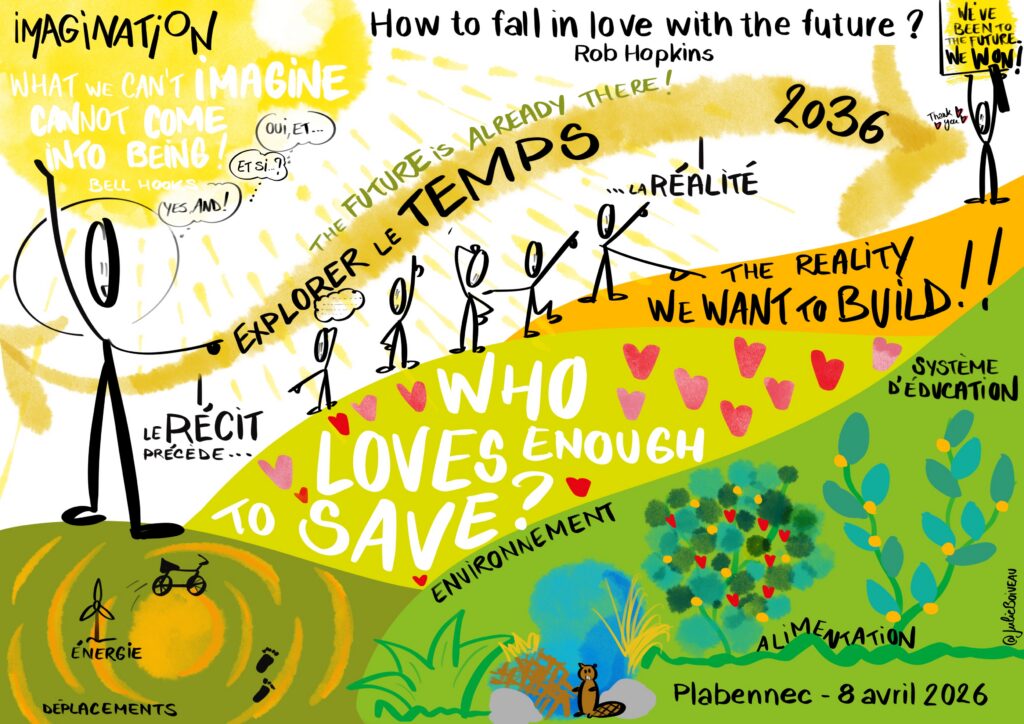 IMAGINATION
How to fall in love with the future ?
Rob Hopkins
WE'VE
BEEN TO
THE FUTURE.
WE WON!
WHAT WE CAN'T IMAGINE
CANNOT COME
INTO BEING!
BELL HOOKS
OUI, ET...
ET SI..?
YES, AND!
THE FUTURE IS ALREADY THERE!
EXPLORER LE TEMPS
2036
Thank
you
... LA RÉALITÉ
THE REALITY
WE WANT TO BUILD!!
LE RÉCIT
PRÉCÈDE...
WHO
LOVES ENOUGH
TO SAVE?
SYSTÈME
D'ÉDUCATION
ENVIRONNEMENT
ÉNERGIE
DÉPLACEMENTS
ALIMENTATION
Plabennec - 8 avril 2026
@JulieBoiveau